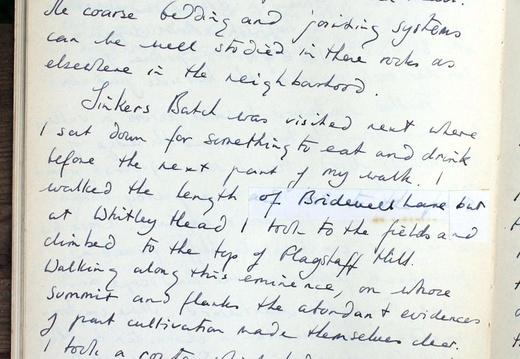 The coarse bedding and jointing systems
can be well studied in these rocks as
elsewhere in the neighbourhood.
Tinkers Batch was visited next where
I sat down for something to eat and drink
before the next part of my walk. I
walked the length of Bridewell Lane but
at Whitley Head I took to the fields and
climbed to the top of Flagstaff Hill.
Walking along this eminence, on whose
summit and flanks the abundant evidences
of past cultivation made themselves clear.
I took a